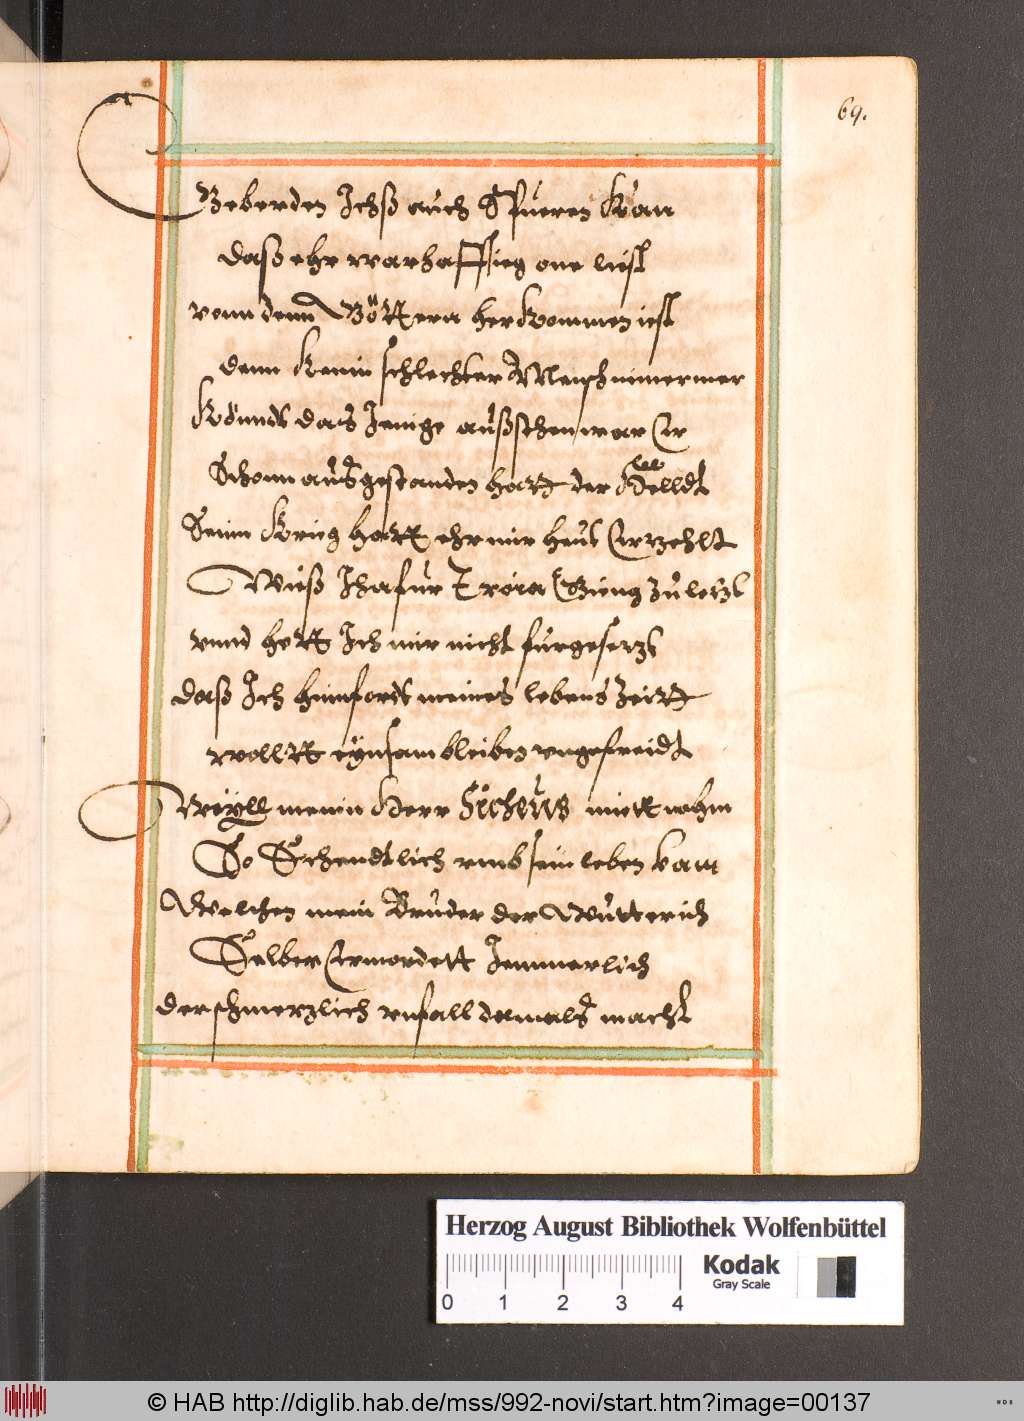 69.
Geberden Ichß auch Spueren Kan
daß ehr warhafftieg one liist
vonn denn Göttern herkommen iest
denn Kenin schlechter Mensch nimermer
Köundt das Jenige außstehen war Er
Schonn ausgestanden hatt der Helldt
Seinn Krieg hatt ehr mir heut Erzehlt
Wieß Iha fur Troia Gieng zu letzt
vnnd hett Ich mir nicht furgesetzt
daß Ich hinnfordt meines lebens Zeitt
wollt eynsam bleiben vngefreidt
Weyll meinn Herr Sicheus miett nahm
So Schendtlich vmb sein leben kam
Welchen mein Bruder der Wutterich
Selber Ermordett Jemmerlich
der schmerzlich vnfall damals macht
Herzog August Bibliothek Wolfenbüttel
Kodak
Gray Scale
0 1 2 3 4
© HAB http://diglib.hab.de/mss/992-novi/start.htm?image=00137